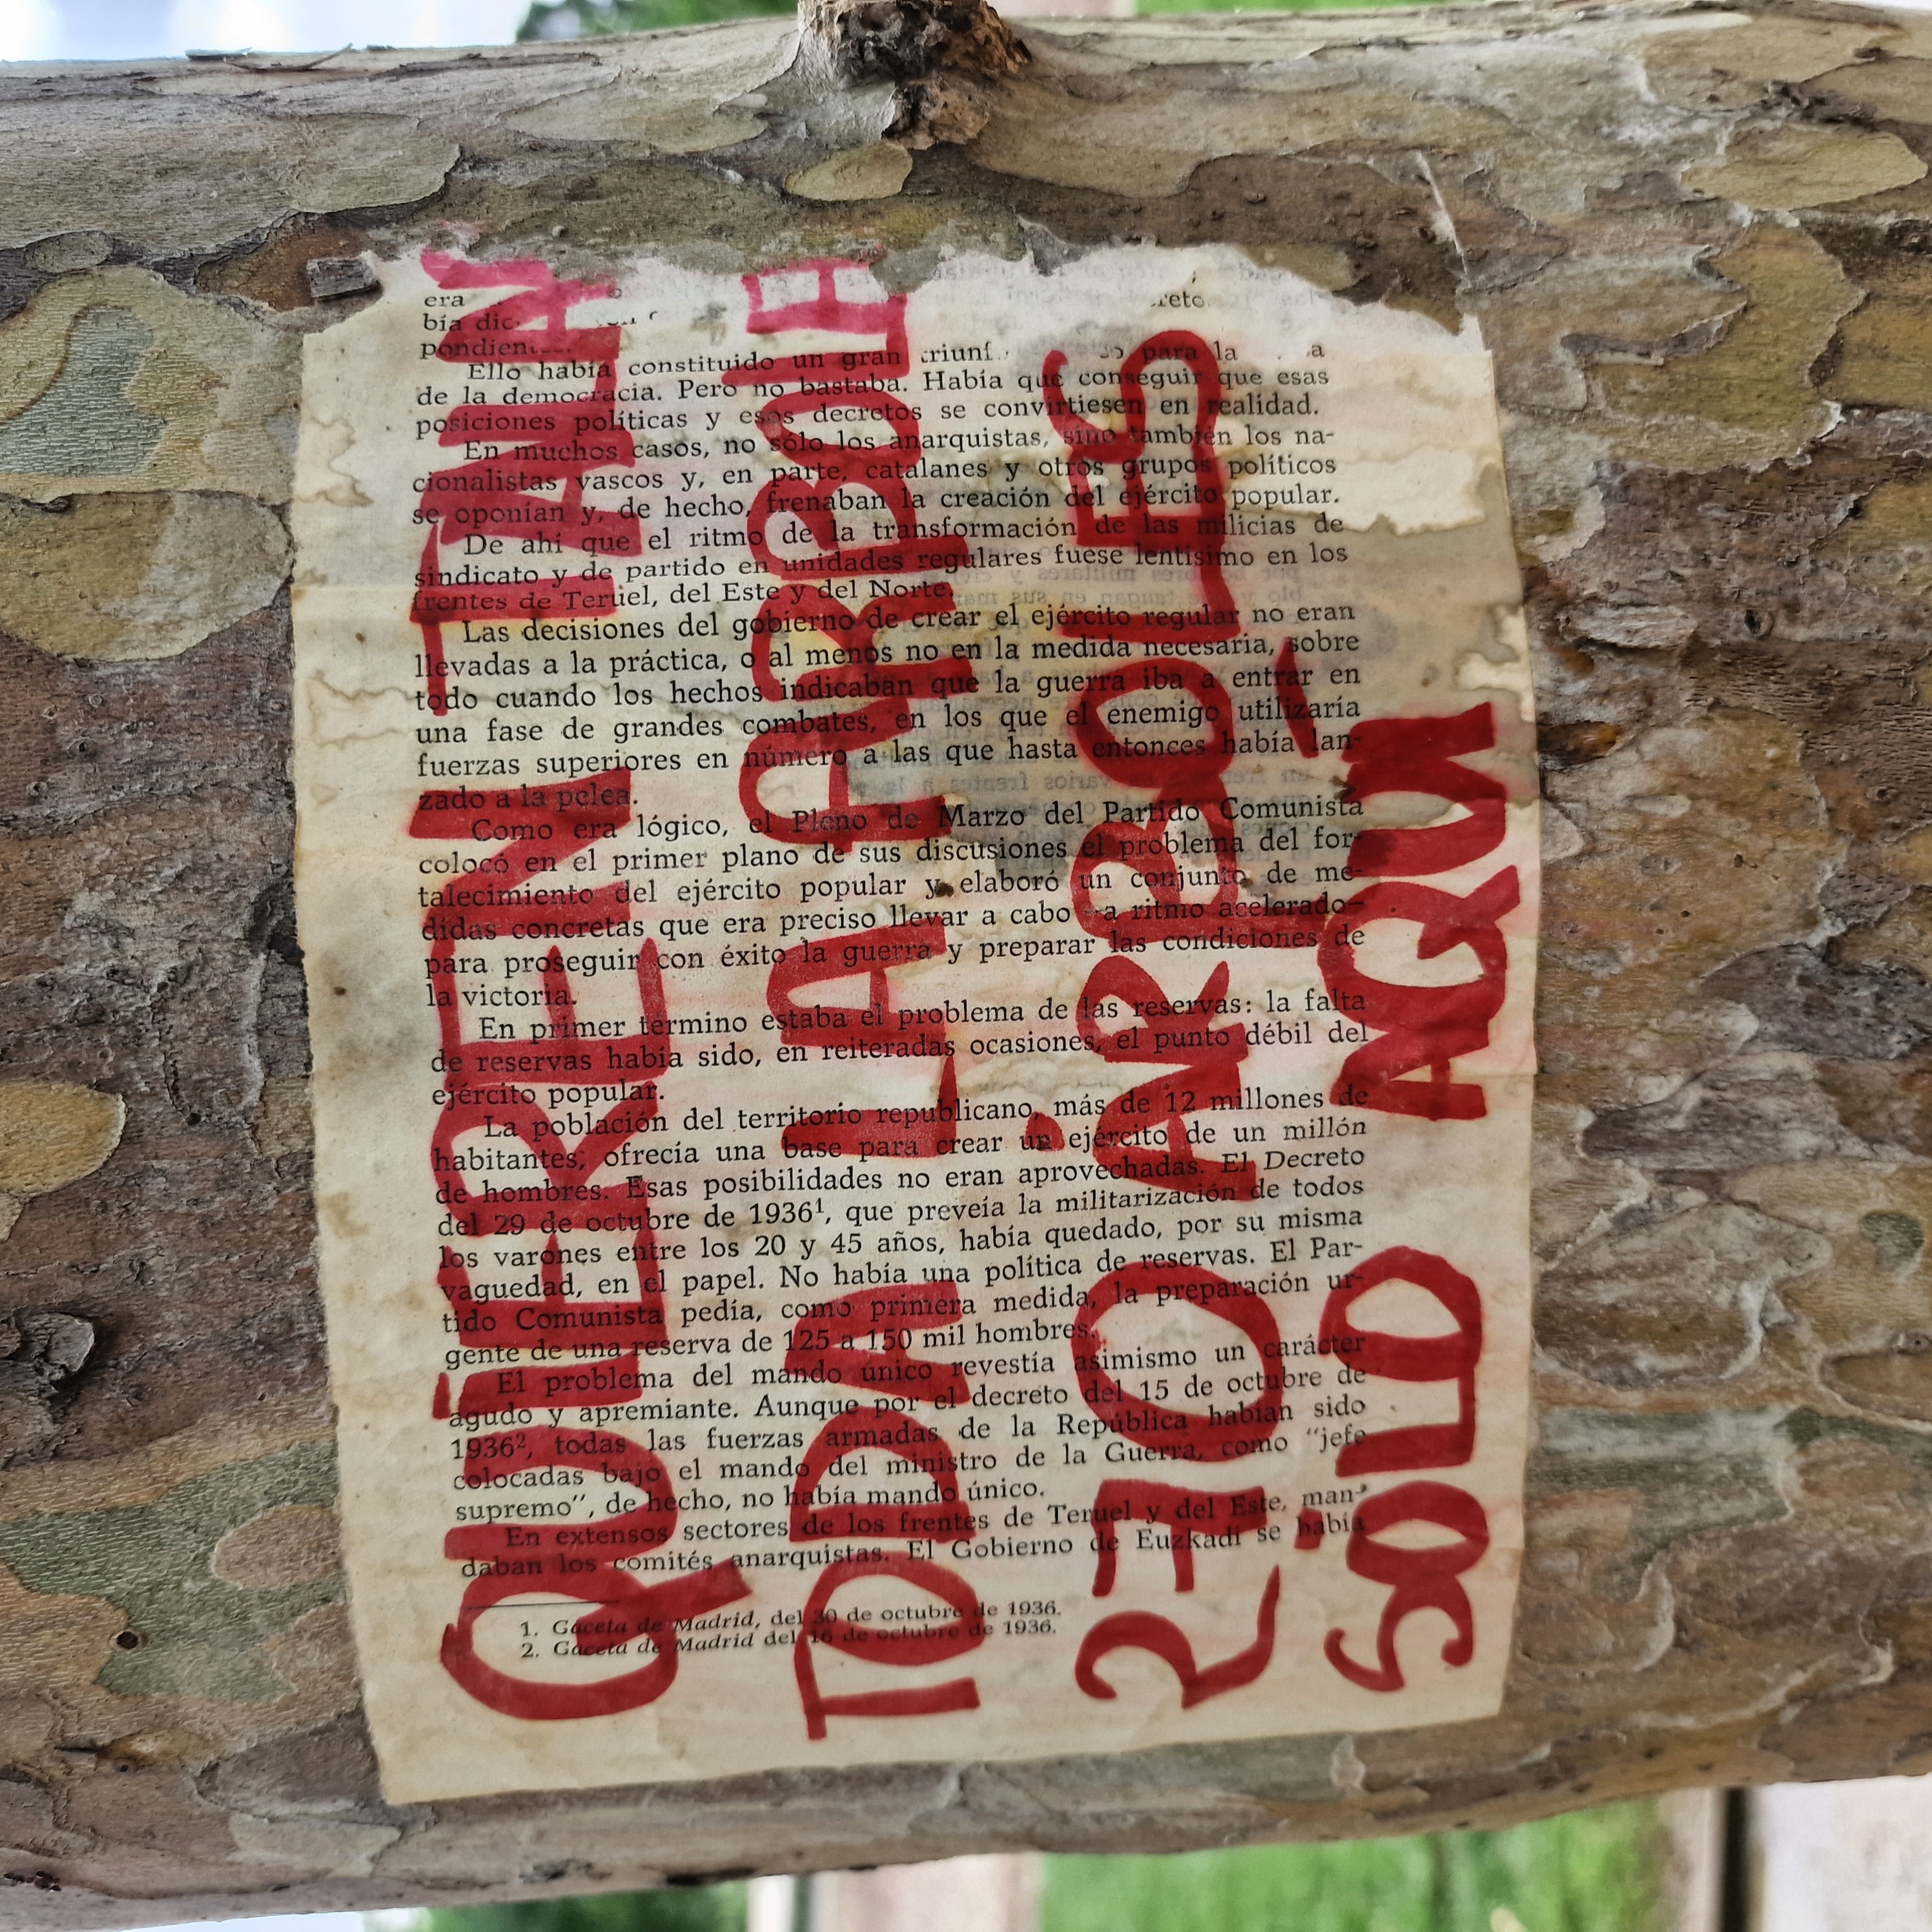 QUIEREN TALAR
TODA LA ARBOLE
270 ÁRBOLES,
SÓLO AQUÍ
era
bía dic
pondien
Ello había constituido un gran triunf para la
de la democracia. Pero no bastaba. Había que conseguir que esas
posiciones políticas y esos decretos se convirtiesen en realidad.
En muchos casos, no sólo los anarquistas, sino también los na-
cionalistas vascos y, en parte, catalanes y otros grupos políticos
se oponían y, de hecho, frenaban la creación del ejército popular.
De ahí que el ritmo de la transformación de las milicias de
sindicato y de partido en unidades regulares fuese lentísimo en los
frentes de Teruel, del Este y del Norte.
Las decisiones del gobierno de crear el ejército regular no eran
llevadas a la práctica, o al menos no en la medida necesaria, sobre
todo cuando los hechos indicaban que la guerra iba a entrar en
una fase de grandes combates, en los que el enemigo utilizaría
fuerzas superiores en número a las que hasta entonces había lan-
zado a la pelea.
Como era lógico, el Pleno de Marzo del Partido Comunista
colocó en el primer plano de sus discusiones el problema del for-
talecimiento del ejército popular y elaboró un conjunto de me-
didas concretas que era preciso llevar a cabo —a ritmo acelerado—
para proseguir con éxito la guerra y preparar las condiciones de
la victoria.
En primer término estaba el problema de las reservas: la falta
de reservas había sido, en reiteradas ocasiones, el punto débil del
ejército popular.
La población del territorio republicano, más de 12 millones de
habitantes, ofrecía una base para crear un ejército de un millón
de hombres. Esas posibilidades no eran aprovechadas. El Decreto
del 29 de octubre de 1936¹, que preveía la militarización de todos
los varones entre los 20 y 45 años, había quedado, por su misma
vaguedad, en el papel. No había una política de reservas. El Par-
tido Comunista pedía, como primera medida, la preparación ur-
gente de una reserva de 125 a 150 mil hombres.
El problema del mando único revestía asimismo un carácter
agudo y apremiante. Aunque por el decreto del 15 de octubre de
1936², todas las fuerzas armadas de la República habían sido
colocadas bajo el mando del ministro de la Guerra, como "jefe
supremo", de hecho, no había mando único.
En extensos sectores de los frentes de Teruel y del Este, man-
daban los comités anarquistas. El Gobierno de Euzkadi se había
1. Gaceta de Madrid, del 30 de octubre de 1936.
2. Gaceta de Madrid del 16 de octubre de 1936.